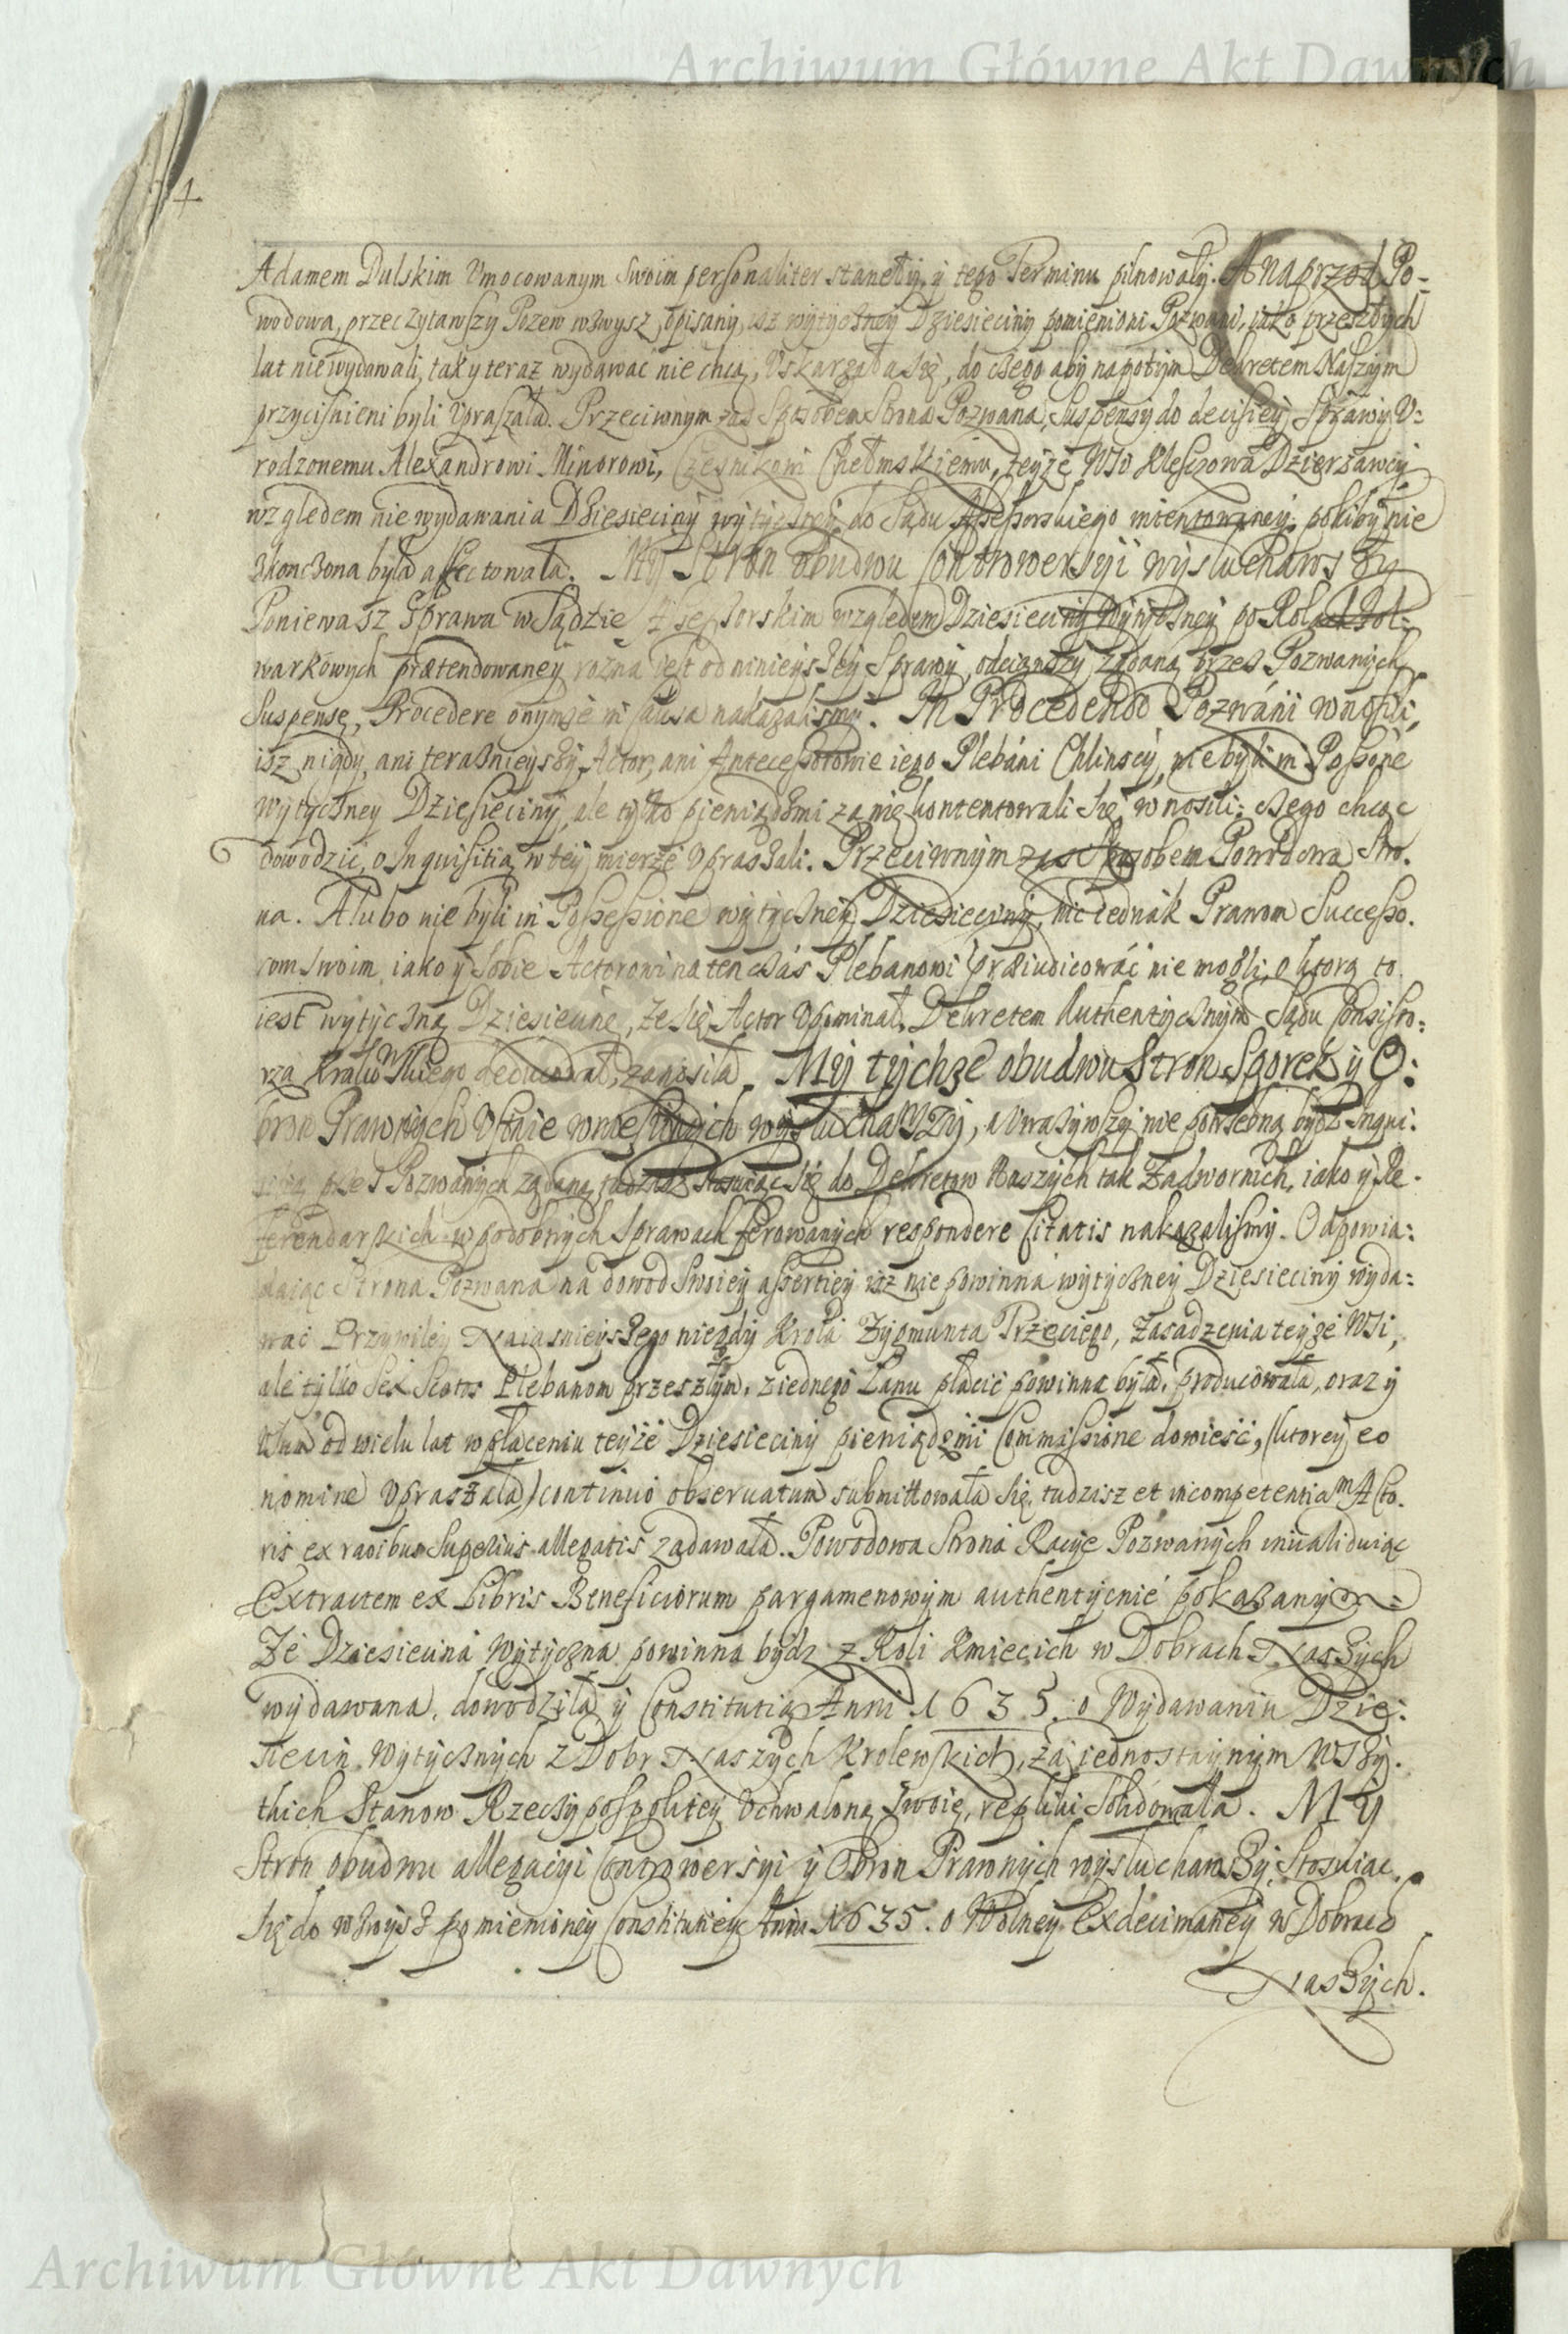 Archiwum Główne Akt Dawnych
4
Adamem Dulskim Umocowanym swoim personaliter stanęły, y tego Terminu pilnowały. A naprzod Po-
wodowa, przeczytawszy Pozew wzwysz opisany, isz wytyczney Dziesięciny pomienioni Pozwani, iako przeszłych
lat nie wydawali, tak y teraz wydawać nie chcą, Uskarzała się, do czego aby napotym Dekretem Naszym
przyciśnieni byli Upraszała. Przeciwnym zas Sposobem Strona Pozwana, Suspensy do decisiey Sprawy U-
rodzonemu Alexandrowi Minorowi, Czesnikowi Chełmskiemu, teyże Wsi Kleszowa Dzierżawcy
względem nie wydawania Dziesięciny wytyczney do Sądu Assessorskiego intentowaney, pokiby nie
skonczona była affectowała. My Stron obudwu Controwersyi wysłuchawszy
Poniewasz Sprawa w Sądzie Assessorskim względem Dziesięciny wytyczney po Rolach Fol-
warkowych prætendowaney rozna iest od ninieyszey Sprawy, odciąwszy żądaną przez Pozwanych
Suspensę, Procedere onymże in causa nakazalismy. In Procedendo Pozwáni wnosili,
isz nigdy, ani teraznieyszy Actor, ani Antecessorowie iego Plebáni Chlinscy, nie byli in Possessione
wytyczney Dziesięciny, ale tylko pieniądzmi za nię kontentowali się, wnosili: czego chcąc
dowodzić, o Inquisitią w tey mierze Upraszali. Przeciwnym zas Sposobem Powodowa Stro-
na. A lubo nie byli in Possessione wytyczney Dziesięciny, nic iednák Prawom Successo-
rom swoim iako y sobie Actorowi na ten czás Plebanowi præiudicowáć nie mogli, o ktorą to
iest wytyczną Dziesięcinę, że się Actor Upominał, Dekretem Authentycznym Sądu Consisto-
rza Krakowskiego deducował, zanosiła. My tychże obudwu Stron Sporek y O-
bron Prawnych Ustnie wniesionych wysłuchawszy, Uważywszy nie potrzebną bydź Inqui-
przez Pozwanych żądaną, Stosuiąc się do Dekretow Naszych tak Zadwornich, iako y Re-
ferendarskich w podobnych Sprawach ferowanych respondere Citatis nakazalismy. Odpowia-
daiąc Strona Pozwana na dowod Swoiey assertiey isz nie powinna wytyczney Dziesięciny wyda-
wać Przywiley Naiasnieyszego niegdy Krola Zygmunta Trzeciego, Zasadzenia teyże Wsi,
ale tylko Sex Scotos Plebanom przeszłym, z iednego Łanu płacić powinna była, producowała, oraz y
Usum od wielu lat w płaceniu teyże Dziesięciny pieniądzmi Commissione dowieść, (ktorey eo
nomine Upraszała) continuo observatum submittowała się, tudzisz et incompetentiam Acto-
ris ex rationibus Superius allegatis zadawała. Powodowa Strona Racye Pozwanych invaliduiąc
Extractem ex Libris Beneficiorum pargamenowym authentycnie pokazanym
Że Dziesięcina Wytyczna powinna bydz z Roli Kmiecich w Dobrach Naszych
wydawana, dowodziła y Constitutią Anni 1635. o Wydawaniu Dzie-
siecin Wytycznych z Dobr Naszych Krolewskich, za iednostaynym Wszy-
tkich Stanow Rzeczypospolitey Uchwaloną Swoię repliki Solidowała. My
Stron obudwu allegacyi Controwersyi y Obron Prawnych wysłuchawszy, Stosuiąc
się do wzwysz pomienioney Constitutiey Anni 1635. o Wolney Exdecimaney w Dobrach
Naszych.
Archiwum Główne Akt Dawnych